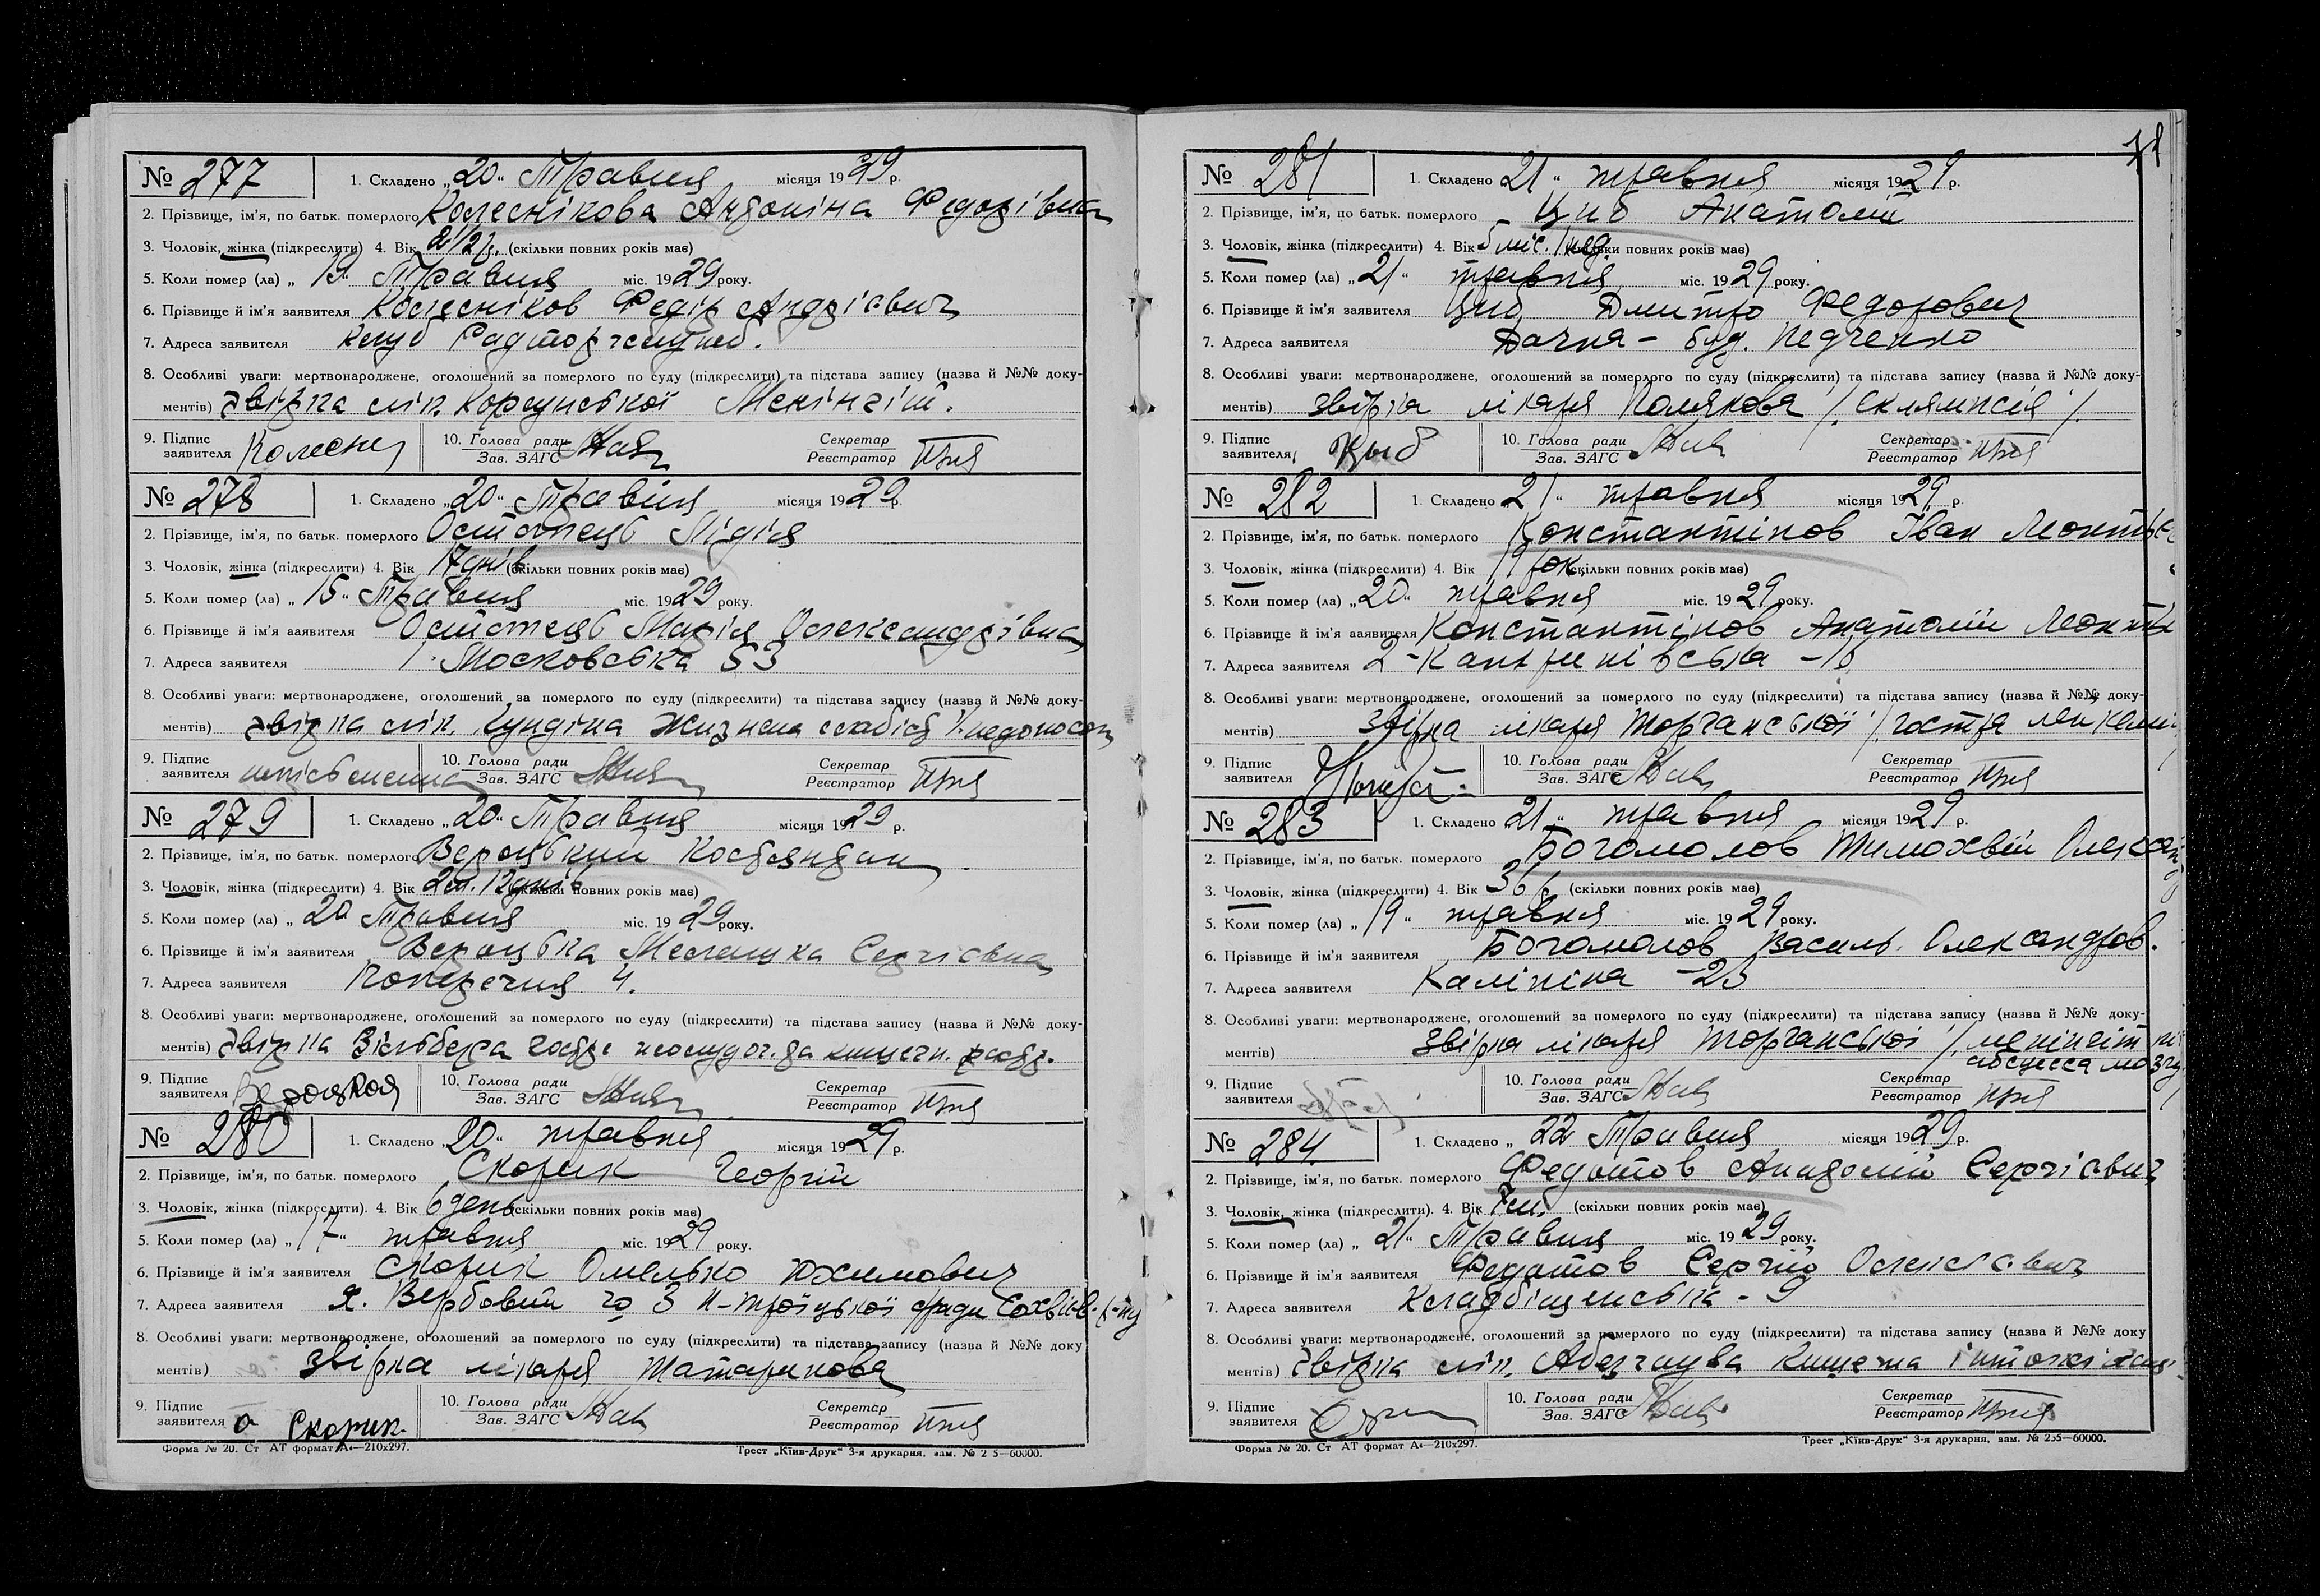 № 277 1. Складено „20“ Травня місяця 1929 р.
2. Прізвище, ім'я, по батьк. померлого Колеснікова Антоніна Федорівна
3. Чоловік, жінка (підкреслити) 4. Вік 2 1/2 р. (скільки повних років має)
5. Коли помер (ла) „19“ Травня міс. 1929 року.
6. Прізвище й ім'я заявителя Колесніков Федір Андрієвич
7. Адреса заявителя клуб
8. Особливі уваги: мертвонароджене, оголошений за померлого по суду (підкреслити) та підстава запису (назва й №№ доку-
ментів) звірка лік. Корсунської Менінгіт.
9. Підпис заявителя Колесн 10. Голова ради Зав. ЗАГС Секретар Реєстратор
№ 278 1. Складено „20“ Травня місяця 1929 р.
2. Прізвище, ім'я, по батьк. померлого Остапець Лідія
3. Чоловік, жінка (підкреслити) 4. Вік 17 днів (скільки повних років має)
5. Коли помер (ла) „15“ Травня міс. 1929 року.
6. Прізвище й ім'я заявителя Остапець Марія Олександрівна
7. Адреса заявителя Московська 53
8. Особливі уваги: мертвонароджене, оголошений за померлого по суду (підкреслити) та підстава запису (назва й №№ доку-
ментів) звірка лік. Кундіна
9. Підпис заявителя неписьменна 10. Голова ради Зав. ЗАГС Секретар Реєстратор
№ 279 1. Складено „20“ Травня місяця 1929 р.
2. Прізвище, ім'я, по батьк. померлого Вероцький Костянтан
3. Чоловік, жінка (підкреслити) 4. Вік 2 м. 12 днів (скільки повних років має)
5. Коли помер (ла) „20 Травня міс. 1929 року.
6. Прізвище й ім'я заявителя Вероцька Меланка Сергієвна
7. Адреса заявителя Поперечня 4.
8. Особливі уваги: мертвонароджене, оголошений за померлого по суду (підкреслити) та підстава запису (назва й №№ доку-
ментів) звірка Зільбера
9. Підпис заявителя Вероцкая 10. Голова ради Зав. ЗАГС Секретар Реєстратор
№ 280 1. Складено „20“ травня місяця 1929 р.
2. Прізвище, ім'я, по батьк. померлого Скорик Георгій
3. Чоловік, жінка (підкреслити). 4. Вік 6 день (скільки повних років має)
5. Коли помер (ла) „17“ травня міс. 1929 року.
6. Прізвище й ім'я заявителя Скорик Омелько Юхимович
7. Адреса заявителя х. Вербовий
8. Особливі уваги: мертвонароджене, оголошений за померлого по суду (підкреслити) та підстава запису (назва й №№ доку
ментів) звірка лікаря Татаринова
9. Підпис заявителя о Скорик. 10. Голова ради Зав. ЗАГС Секретар Реєстратор
Форма № 20. Ст АТ формат А4—210x297. Трест „Київ-Друк“ 3-я друкарня, зам. № 2 5—60000.
№ 281 1. Складено 21“ травня місяця 1929 р.
2. Прізвище, ім'я, по батьк. померлого Циб Анатолій
3. Чоловік, жінка (підкреслити) 4. Вік 5 міс. 1 нед. (скільки повних років має)
5. Коли помер (ла) „21“ травня міс. 1929 року.
6. Прізвище й ім'я заявителя Циб Дмитро Федорович
7. Адреса заявителя Дачня - буд. Педченко
8. Особливі уваги: мертвонароджене, оголошений за померлого по суду (підкреслити) та підстава запису (назва й №№ доку-
ментів) звірка лікаря Полякова /еклямпсія/.
9. Підпис заявителя Цыб 10. Голова ради Зав. ЗАГС Секретар Реєстратор
№ 282 1. Складено 21“ травня місяця 1929 р.
2. Прізвище, ім'я, по батьк. померлого Константінов Іван
3. Чоловік, жінка (підкреслити) 4. Вік 19 рок. (скільки повних років має)
5. Коли помер (ла) „20“ травня міс. 1929 року.
6. Прізвище й ім'я заявителя Константінов Анатолій
7. Адреса заявителя 2-
8. Особливі уваги: мертвонароджене, оголошений за померлого по суду (підкреслити) та підстава запису (назва й №№ доку-
ментів) звірка лікаря Торганської / гостра
9. Підпис заявителя 10. Голова ради Зав. ЗАГС Секретар Реєстратор
№ 283 1. Складено „21“ травня місяця 1929 р.
2. Прізвище, ім'я, по батьк. померлого Богомолов Тимохвій Олександ
3. Чоловік, жінка (підкреслити) 4. Вік 36 р. (скільки повних років має)
5. Коли помер (ла) „19“ травня міс. 1929 року.
6. Прізвище й ім'я заявителя Богомолов Василь Олександров.
7. Адреса заявителя Калініна - 25
8. Особливі уваги: мертвонароджене, оголошений за померлого по суду (підкреслити) та підстава запису (назва й №№ доку-
ментів) звірка лікаря Торганської / менінгіт
абсцесса мозгу/
9. Підпис заявителя 10. Голова ради Зав. ЗАГС Секретар Реєстратор
№ 284. 1. Складено „ 22 Травня місяця 1929 р.
2. Прізвище, ім'я, по батьк. померлого Федотов Анатолій Сергієвич
3. Чоловік, жінка (підкреслити). 4. Вік 7 м. (скільки повних років має)
5. Коли помер (ла) „ 21“ Травня міс. 1929 року.
6. Прізвище й ім'я заявителя Федотов Сергій Олексієвич
7. Адреса заявителя Кладбіщенська - 9
8. Особливі уваги: мертвонароджене, оголошений за померлого по суду (підкреслити) та підстава запису (назва й №№ доку
ментів) звірка лік. Кишечна
9. Підпис заявителя 10. Голова ради Зав. ЗАГС Секретар Реєстратор
Форма № 20. Ст АТ формат А4—210x297. Трест „Київ-Друк“ 3-я друкарня, зам. № 255—60000.